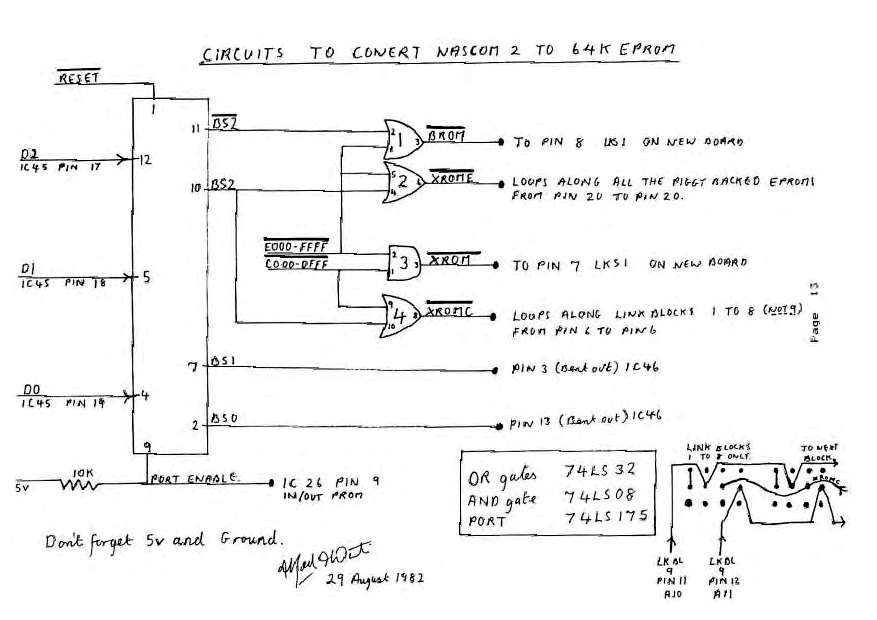 CIRCUITS TO CONERT NASCOM 2 TO 64K EPROM
RESET
1
D2
IC45 PIN 17
12
11 BS2
2
1
1
3
BROM
TO PIN 8 LKS1 ON NEW BOARD
10 BS2
5
4
2
6
XROME
LOOPS ALONG ALL THE PIGGY BACKED EPROMS
FROM PIN 20 TO PIN 20.
E000-FFFF
C000-DFFF
2
1
3
3
XROM
TO PIN 7 LKS1 ON NEW BOARD
D1
IC45 PIN 18
5
9
10
4
8
XROMC
LOOPS ALONG LINK BLOCKS 1 TO 8 (NOT 9)
FROM PIN 6 TO PIN 6
7 BS1
PIN 3 (Bent out) IC46
D0
IC45 PIN 19
4
2 BS0
PIN 13 (Bent out) IC46
9
10K
5V
PORT ENABLE.
IC 26 PIN 9
IN/OUT PROM
OR gates 74LS32
AND gate 74LS08
PORT 74LS175
LINK BLOCKS
1 TO 8 ONLY.
TO NEXT
BLOCK.
XROMC
LKBL
9
PIN 11
A10
LKBL
9
PIN 12
A11
Don't forget 5v and Ground.
29 August 1982
Page 13